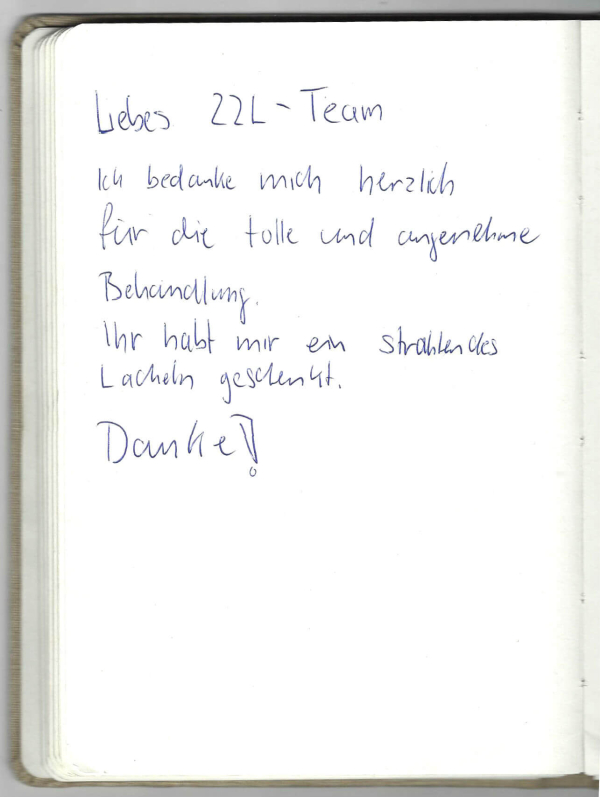 Liebes ZZL-Team
Ich bedanke mich herzlich
für die tolle und angenehme
Behandlung.
Ihr habt mir ein strahlendes
Lächeln geschenkt.
Danke!